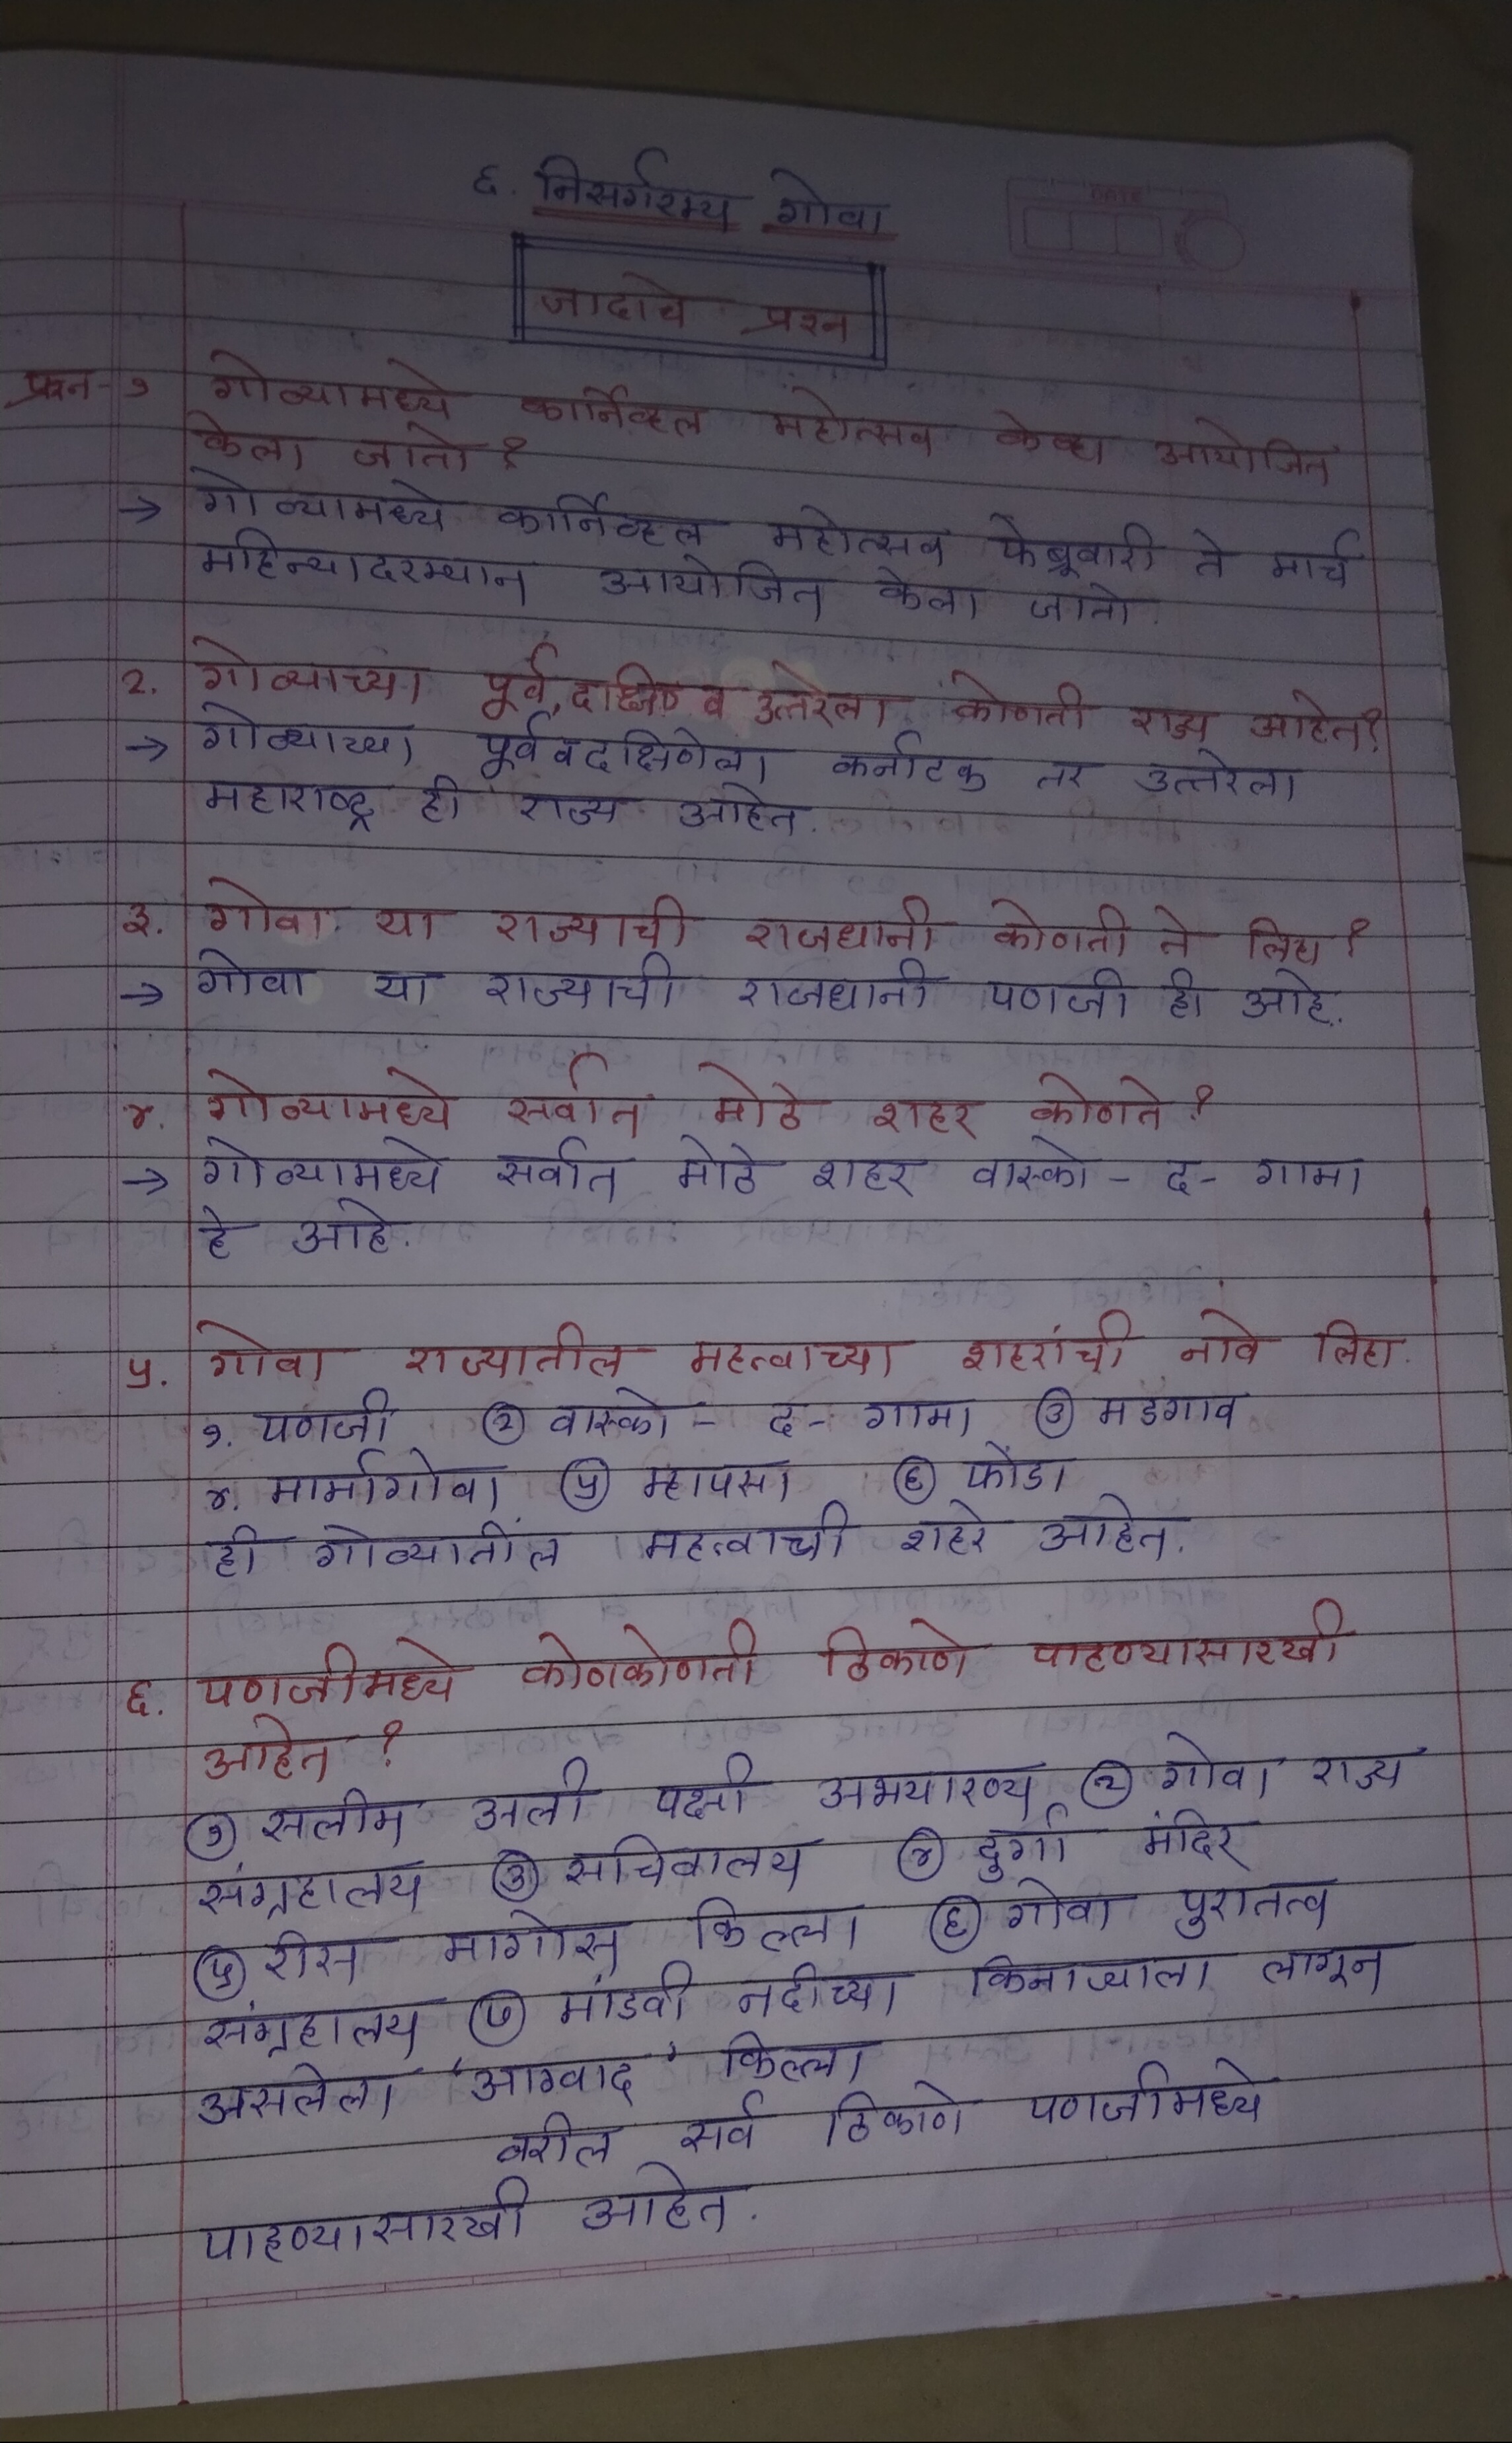 ६. निसर्गरम्य गोवा
जादाचे प्रश्न
प्रश्न-१ गोव्यामध्ये कार्निव्हल महोत्सव केव्हा आयोजित
केला जातो?
→ गोव्यामध्ये कार्निव्हल महोत्सव फेब्रूवारी ते मार्च
महिन्यादरम्यान आयोजित केला जातो.
2. गोव्याच्या पूर्व, दक्षिण व उत्तरेला कोणती राज्य आहेत?
→ गोव्याच्या पूर्व व दक्षिणेला कर्नाटक तर उत्तरेला
महाराष्ट्र ही राज्य आहेत.
३. गोवा या राज्याची राजधानी कोणती ते लिहा?
→ गोवा या राज्याची राजधानी पणजी ही आहे.
४. गोव्यामध्ये सर्वात मोठे शहर कोणते?
→ गोव्यामध्ये सर्वात मोठे शहर वास्को - द - गामा
हे आहे.
५. गोवा राज्यातील महत्वाच्या शहरांची नावे लिहा.
१. पणजी ② वास्को - द - गामा ③ मडगाव
४. मार्मागोवा ⑤ म्हापसा ⑥ फोंडा
ही गोव्यातील महत्वाची शहरे आहेत.
६. पणजीमध्ये कोणकोणती ठिकाणे पाहण्यासारखी
आहेत?
① सलीम अली पक्षी अभयारण्य ② गोवा राज्य
संग्रहालय ③ सचिवालय ④ दुर्गा मंदिर
⑤ रीस मागोस किल्ला ⑥ गोवा पुरातत्व
संग्रहालय ⑦ मांडवी नदीच्या किनाऱ्याला लागून
असलेला 'आग्वाद' किल्ला
वरील सर्व ठिकाणे पणजीमध्ये
पाहण्यासारखी आहेत.